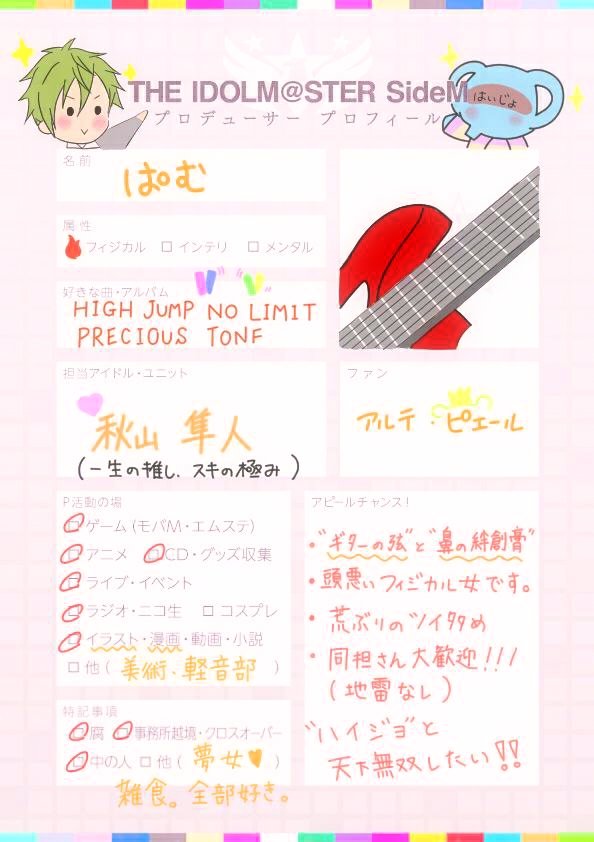 THE IDOLM@STER SideM
はいじょ
プロデューサー プロフィール
名前
ぱむ
属性
フィジカル □ インテリ □ メンタル
好きな曲・アルバム
HIGH JUMP NO LIMIT
PRECIOUS TONE
担当アイドル・ユニット
秋山 隼人
(一生の推し、スキの極み)
ファン
アルテ・ピエール
P活動の場
□ ゲーム (モバM・エムステ)
□ アニメ □ CD・グッズ収集
□ ライブ・イベント
□ ラジオ・ニコ生 □ コスプレ
□ イラスト・漫画・動画・小説
□ 他 ( 美術、軽音部 )
特記事項
□ 腐 □ 事務所越境・クロスオーバー
□ 中の人 □ 他 ( 夢女 )
雑食。全部好き。
アピールチャンス!
・"ギターの弦"と"鼻の絆創膏"
・頭悪いフィジカル女です。
・荒ぶりのツイタタめ
・同担さん大歓迎!!!
(地雷なし)
"ハイジョ"と
天下無双したい!!